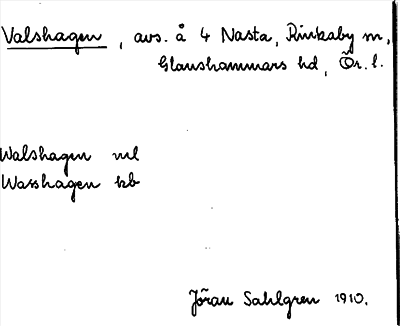 Valshagen, avs. å 4 Nasta, Rinkaby sn,
Glanshammars hd, Ör. l.
Walshagen ml
Wasshagen kb
Jöran Sahlgren 1910.